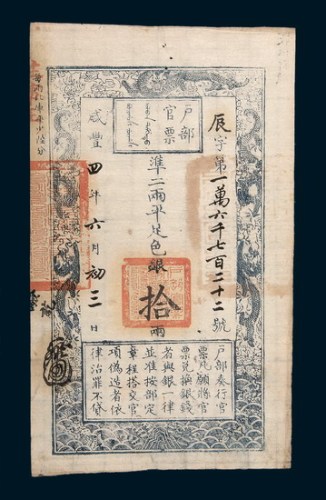 戶部
官票
辰字第一萬六千七百二十二號
準二兩平足色銀拾兩
咸豐四年六月初三日
戶部奏行官
票凡願將官
票兌換銀錢
者與銀一律
並准按部定
章程搭交官
項偽造者依
律治罪不貸